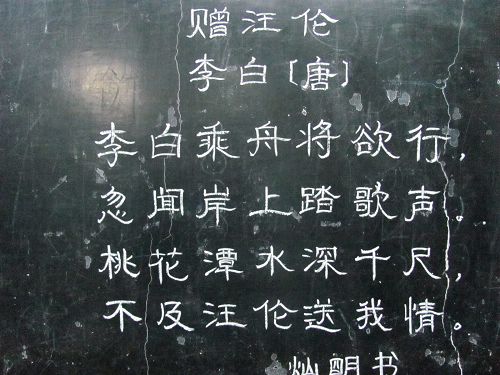 赠汪伦
李白〔唐〕
李白乘舟将欲行，
忽闻岸上踏歌声。
桃花潭水深千尺，
不及汪伦送我情。
灿朙书